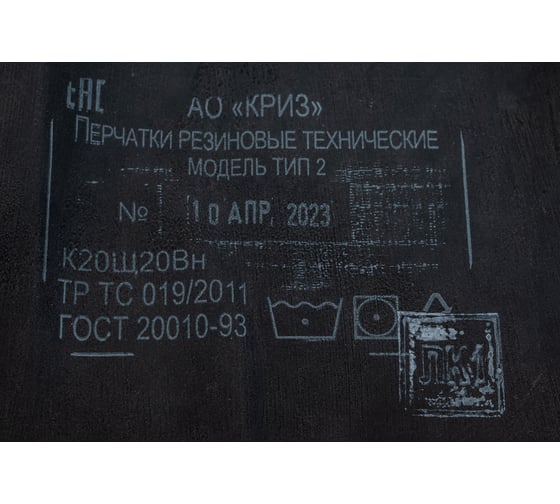 EAC
АО «КРИЗ»
ПЕРЧАТКИ РЕЗИНОВЫЕ ТЕХНИЧЕСКИЕ
МОДЕЛЬ ТИП 2
№ 10 АПР. 2023
К20Щ20Вн
ТР ТС 019/2011
ГОСТ 20010-93
ЛК1